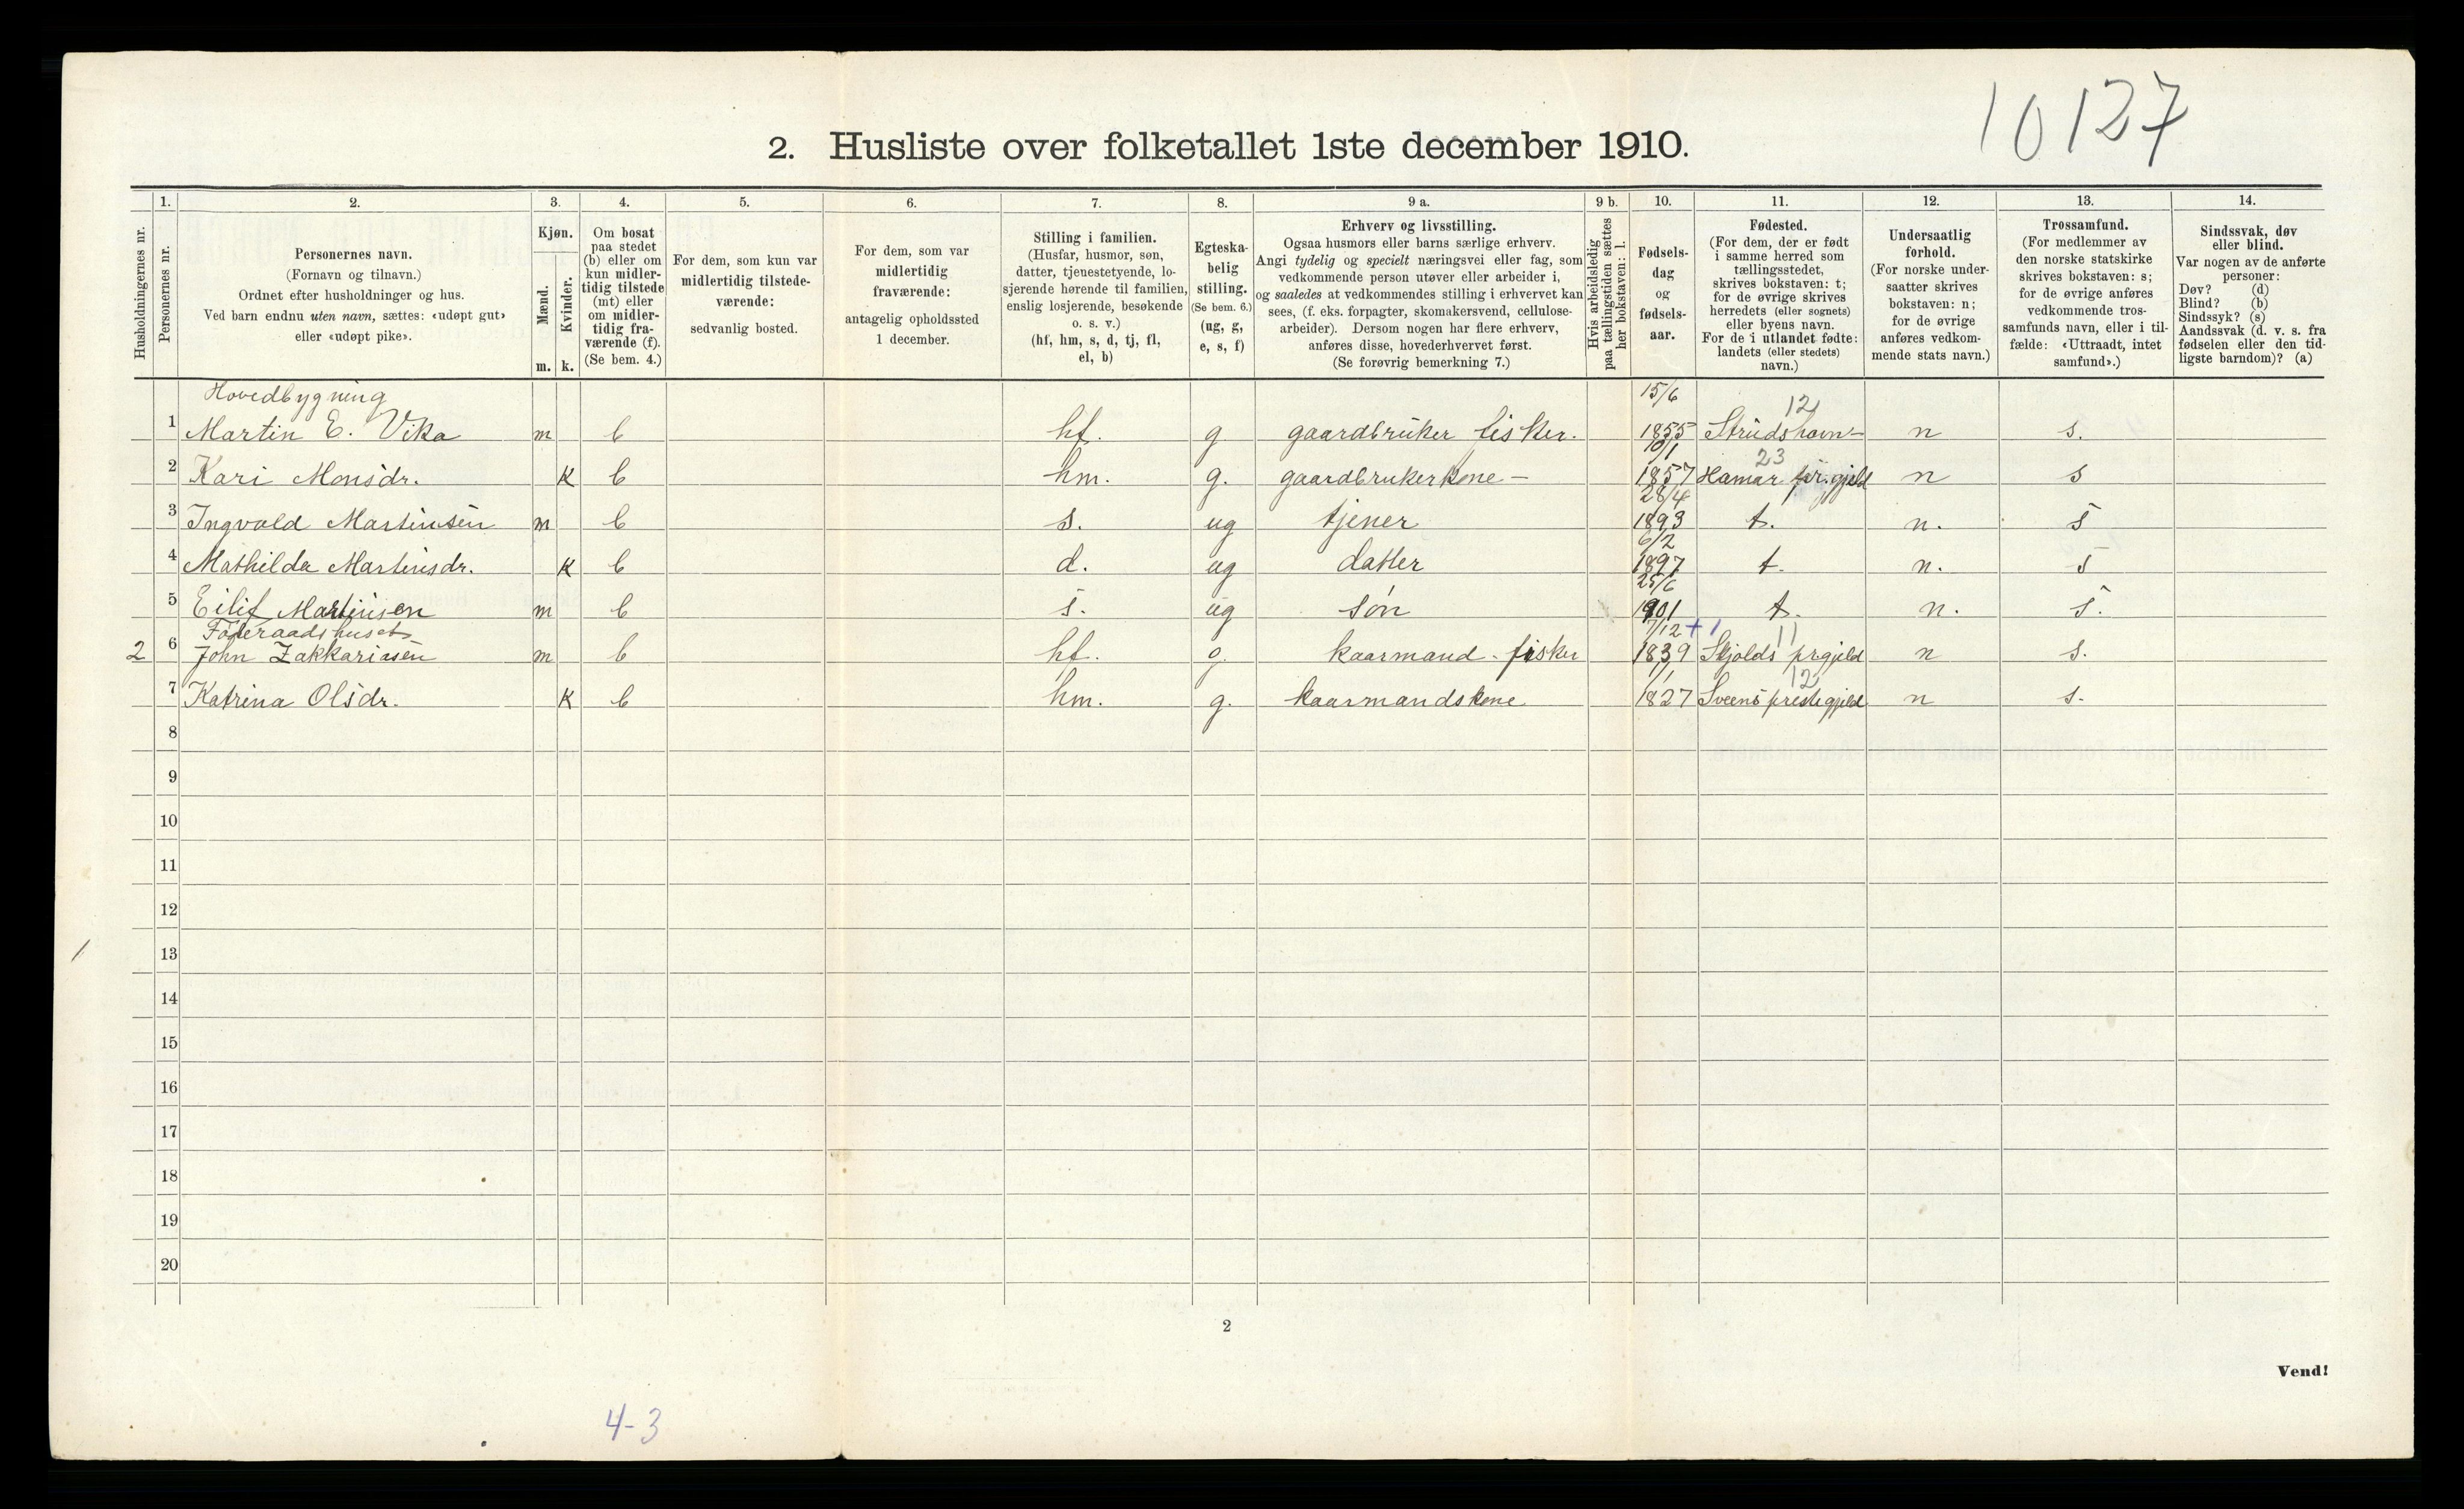 10127
2. Husliste over folketallet 1ste december 1910.
Husholdningernes nr.
1.
Personernes nr.
2.
Personernes navn.
(Fornavn og tilnavn.)
Ordnet efter husholdninger og hus.
Ved barn endnu uten navn, sættes: «udøpt gut»
eller «udøpt pike».
3.
Kjøn.
Mænd.
Kvinder.
m. k.
4.
Om bosat
paa stedet
(b) eller om
kun midler-
tidig tilstede
(mt) eller
om midler-
tidig fra-
værende (f).
(Se bem. 4.)
5.
For dem, som kun var
midlertidig tilstede-
værende:
sedvanlig bosted.
6.
For dem, som var
midlertidig
fraværende:
antagelig opholdssted
1 december.
7.
Stilling i familien.
(Husfar, husmor, søn,
datter, tjenestetyende, lo-
sjerende hørende til familien,
enslig losjerende, besøkende
o. s. v.)
(hf, hm, s, d, tj, fl,
el, b)
8.
Egteska-
belig
stilling.
(Se bem. 6.)
(ug, g,
e, s, f)
9 a.
Erhverv og livsstilling.
Ogsaa husmors eller barns særlige erhverv.
Angi tydelig og specielt næringsvei eller fag, som
vedkommende person utøver eller arbeider i,
og saaledes at vedkommendes stilling i erhvervet kan
sees, (f. eks. forpagter, skomakersvend, cellulose-
arbeider). Dersom nogen har flere erhverv,
anføres disse, hovederhvervet først.
(Se forøvrig bemerkning 7.)
9 b.
Hvis arbeidsledig
paa tællingstiden sættes
her bokstaven: l.
10.
Fødsels-
dag
og
fødsels-
aar.
11.
Fødested.
(For dem, der er født
i samme herred som
tællingsstedet,
skrives bokstaven: t;
for de øvrige skrives
herredets (eller sognets)
eller byens navn.
For de i utlandet fødte:
landets (eller stedets)
navn.)
12.
Undersaatlig
forhold.
(For norske under-
saatter skrives
bokstaven: n;
for de øvrige
anføres vedkom-
mende stats navn.)
13.
Trossamfund.
(For medlemmer av
den norske statskirke
skrives bokstaven: s;
for de øvrige anføres
vedkommende tros-
samfunds navn, eller i til-
fælde: «Uttraadt, intet
samfund».)
14.
Sindssvak, døv
eller blind.
Var nogen av de anførte
personer:
Døv? (d)
Blind? (b)
Sindssyk? (s)
Aandssvak (d. v. s. fra
fødselen eller den tid-
ligste barndom)? (a)
Hovedbygning 15/6 12
1 Martin E. Vika m b hf. g gaardbruker fisker. 1855 Strudshavn n s.
10/1 23
2 Kari Monsdr. k b hm. g. gaardbrukerkone - 1857 Hamar pr.gjeld n s
28/4
3 Ingvald Martinsen m b s. ug tjener 1893 t. n. s
6/2
4 Mathilda Martinsdr. k b d. ug datter 1897 t. n. s
25/6
5 Eilif Martinsen m b s. ug søn 1901 t. n. s.
Føderaadshuset 7/12 +1 11
2 6 John Zakkariasen m b hf. g. kaarmand - fisker 1839 Skjolds prgjeld n s.
1/1 12
7 Katrina Olsdr. k b hm. g. kaarmandskone 1827 Sveens prestegjeld n s.
8
9
10
11
12
13
14
15
16
17
18
19
20
2
Vend!
4-3